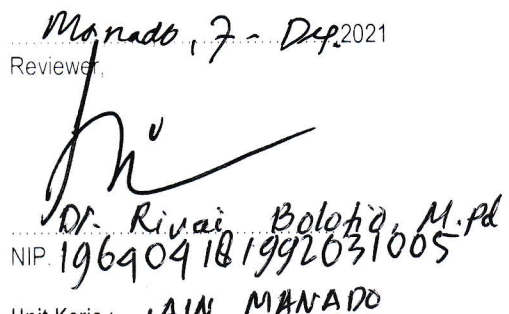 Manado, 7 - Dep. 2021
Reviewer,
Dr. Rivai Bolotio, M.Pd
NIP. 196404181992031005
Unit Kerja : IAIN MANADO